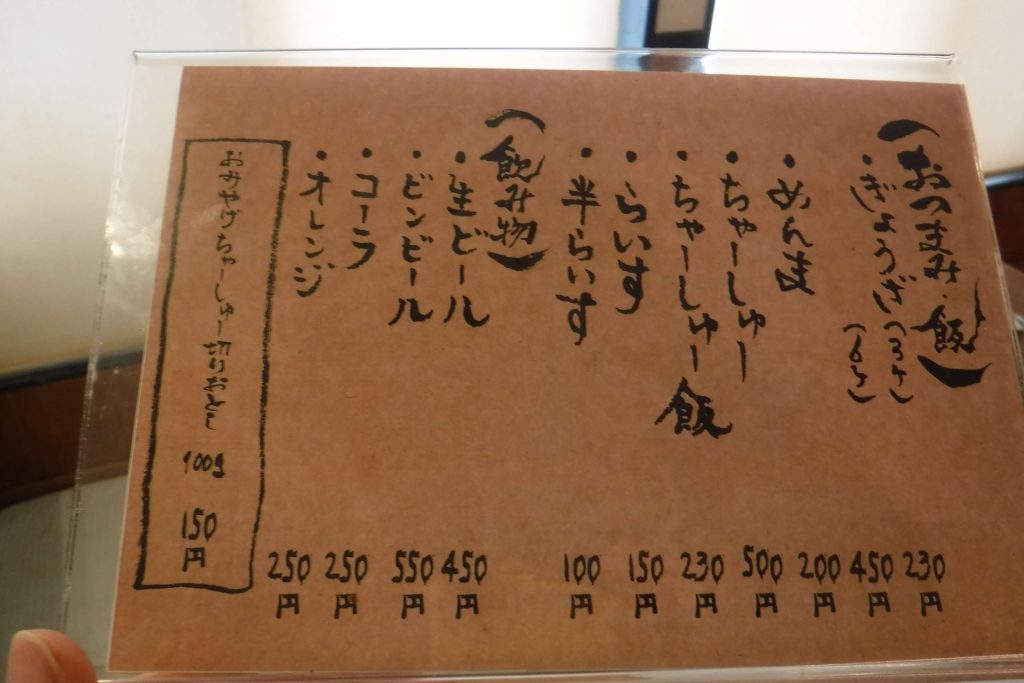 (おつまみ・飯)
・ぎょうざ(3ケ) 230円
(6ケ) 450円
・めんま 200円
・ちゃーしゅー 500円
・ちゃーしゅー飯 230円
・らいす 150円
・半らいす 100円
(飲み物)
・生ビール 450円
・ビンビール 550円
・コーラ 250円
・オレンジ 250円
おみやげちゃーしゅー切りおとし 100g 150円